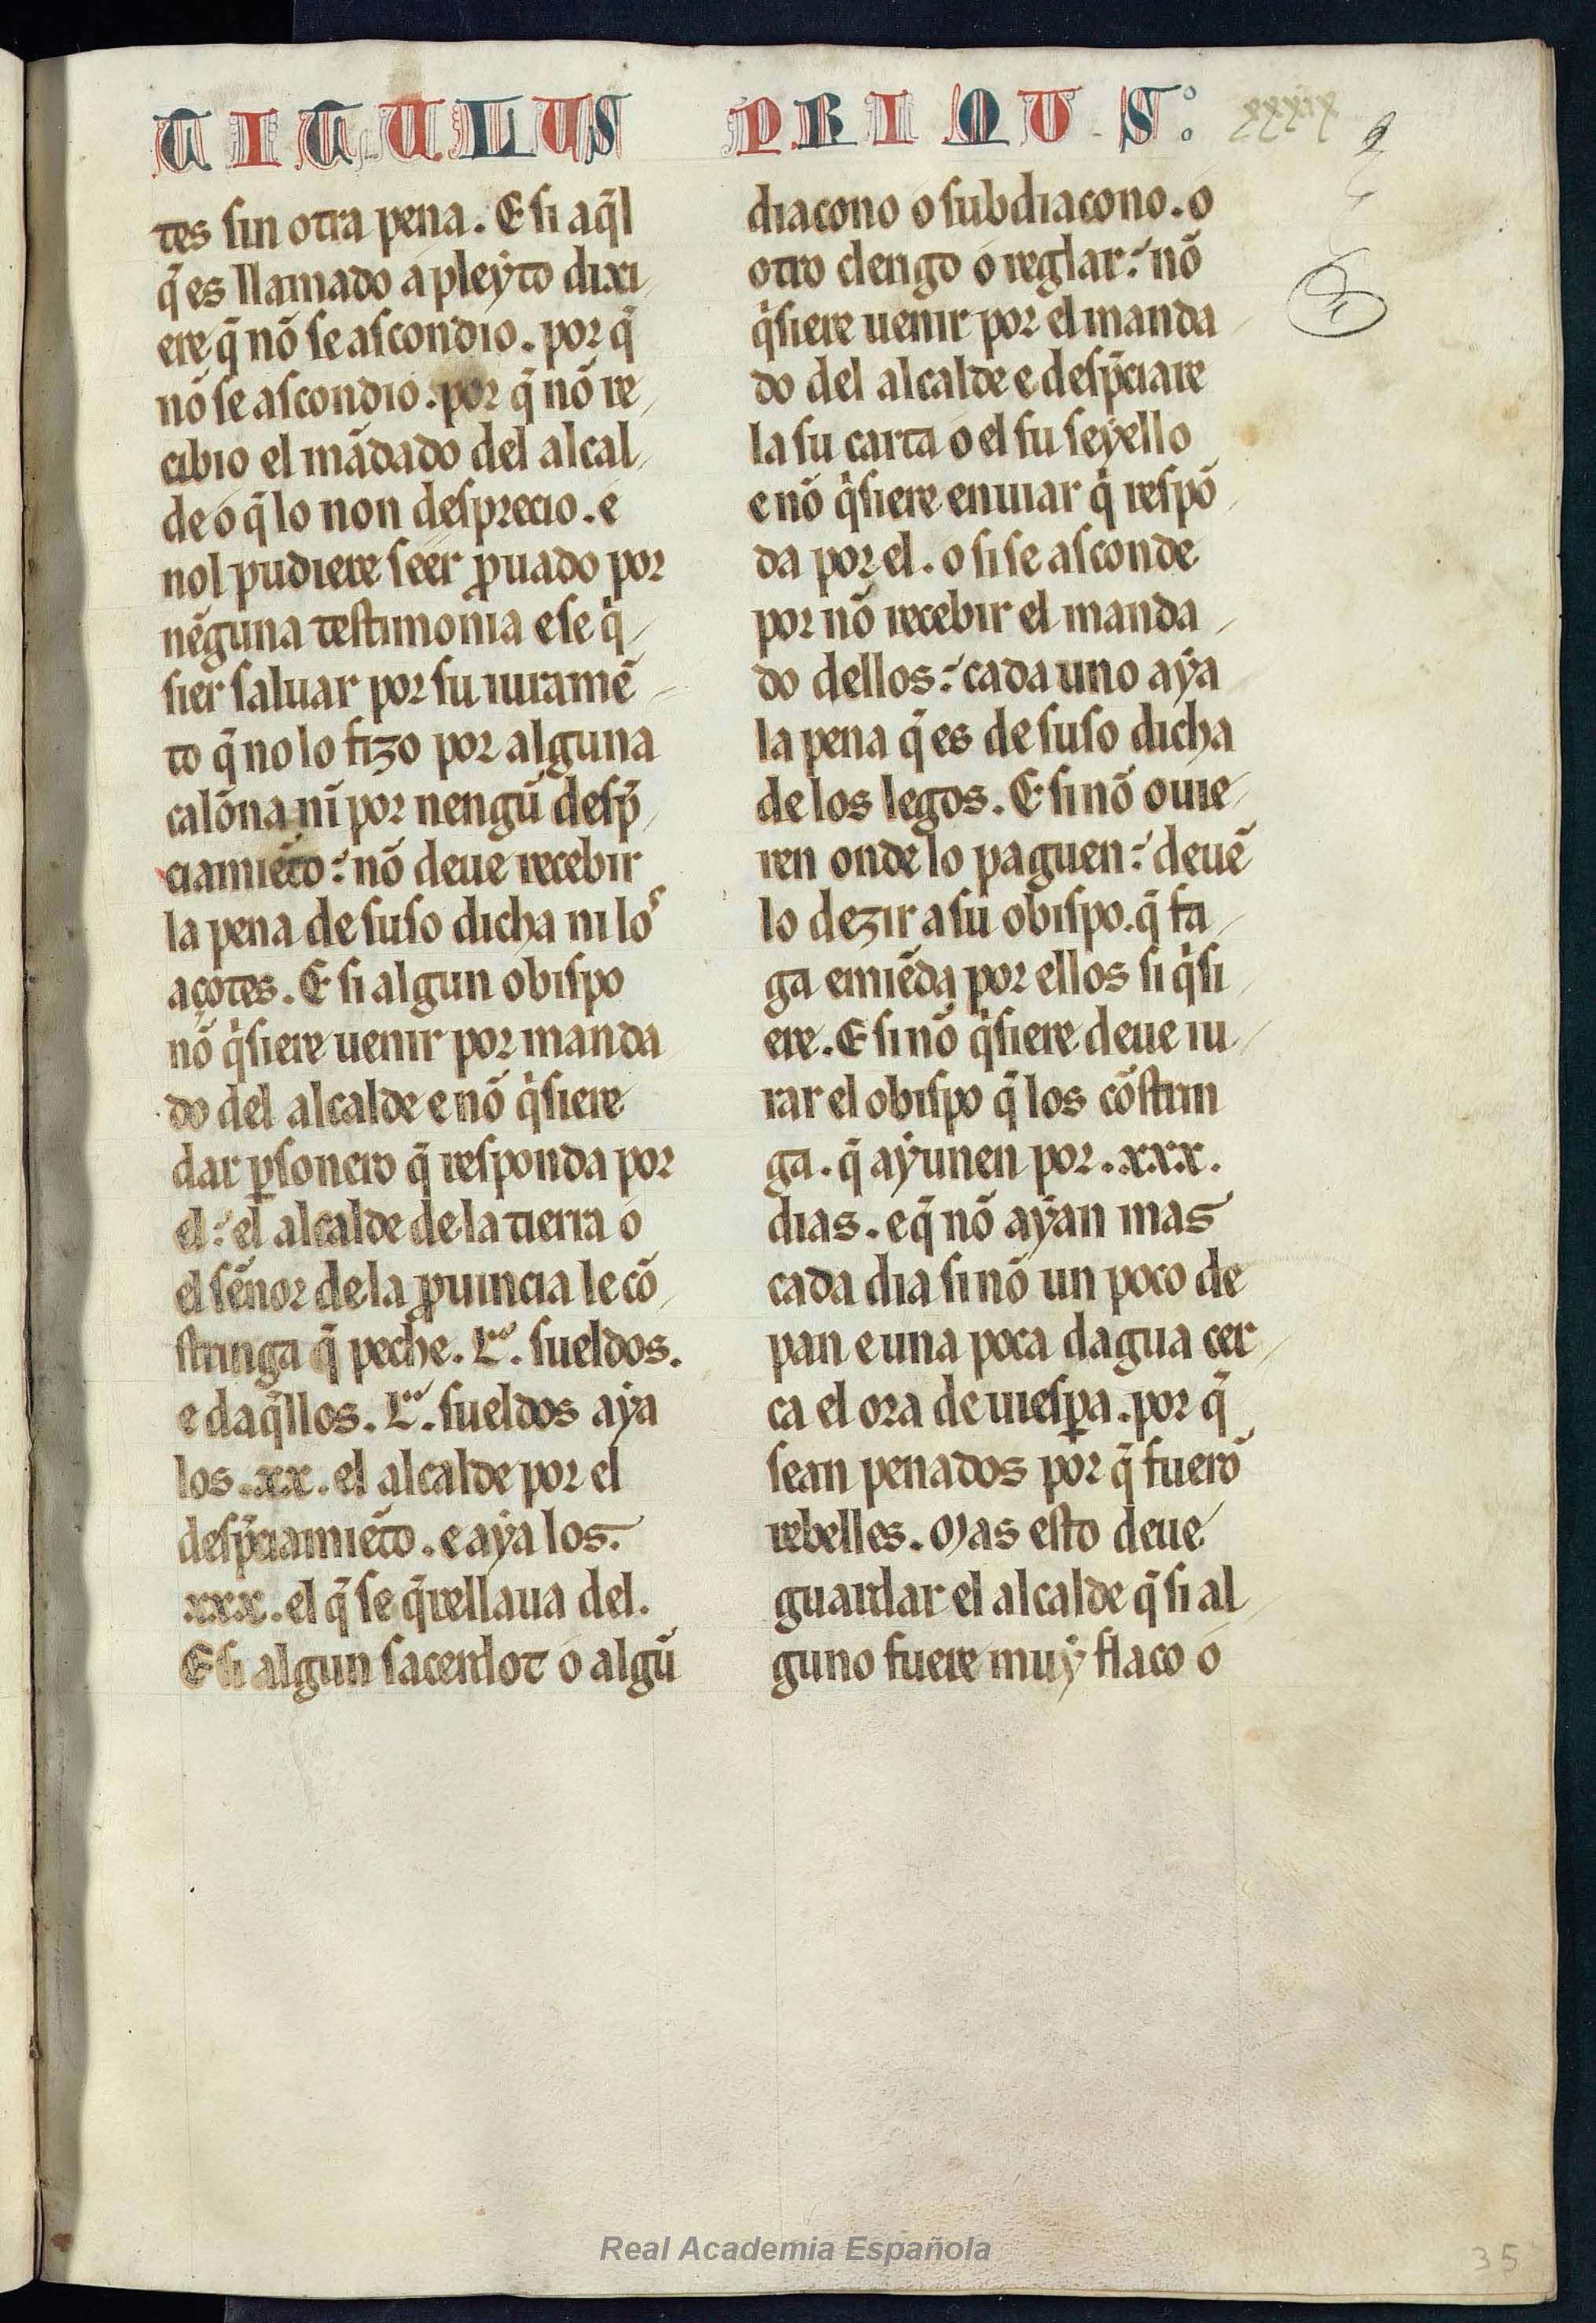 TITULUS PRIMUS: xxxix
tes sin otra pena. E si aq̃l
q̃ es llamado a pleyto dixi
ere q̃ nõ se ascondio. por q̃
nõ se ascondio. por q̃ nõ re
cibio el mãdado del alcal
de o q̃ lo non desprecio. e
nol pudiere seer ꝓuado por
nẽguna testimonia e se q̇
sier saluar por su iuramẽ
to q̃ no lo fizo por alguna
calõna nĩ por nengũ desp̃
ciamiẽto: nõ deue recebir
la pena de suso dicha ni los
açotes. E si algun obispo
nõ q̇siere uenir por manda
do del alcalde e nõ q̇siere
dar ꝑsonero q̃ responda por
el: el alcalde de la tierra o
el sẽnor de la ꝓuincia le cõ
stringa q̃ peche. L.ª sueldos.
e daq̃llos. L.ª sueldos aya
los .xx. el alcalde por el
desp̃ciamiẽto. e aya los.
xxx. el q̃ se q̃rellaua del.
E si algun sacerdot o algũ
diacono o subdiacono. o
otro clerigo o reglar: nõ
q̇siere uenir por el manda
do del alcalde e desp̃ciare
la su carta o el su seyello
e nõ q̇siere enuiar q̇ respõ
da por el. o si se asconde
por nõ recebir el manda
do dellos: cada uno aya
la pena q̃ es de suso dicha
de los legos. E si nõ ouie
ren onde lo paguen: deuẽ
lo dezir a su obispo. q̃ fa
ga emiẽda por ellos si q̇si
ere. E si nõ q̇siere deue iu
rar el obispo q̃ los cõstrin
ga. q̃ ayunen por .xxx.
dias. e q̃ nõ ayan mas
cada dia si nõ un poco de
pan e una poca dagua cer
ca el ora de uiesꝑa. por q̃
sean penados por q̃ fuerõ
rebelles. Mas esto deue
guardar el alcalde q̃ si al
guno fuere muy flaco o
Real Academia Española
35